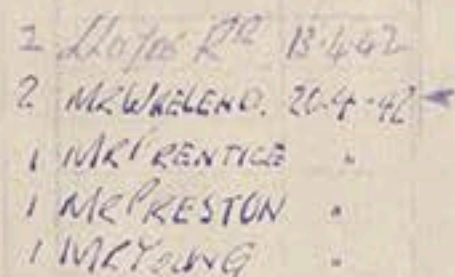 2 Lloyds Rd 13.4.42
2 MR WHELEND. 20.4.42
1 MR PRENTICE "
1 MR PRESTON "
1 MR YOUNG "